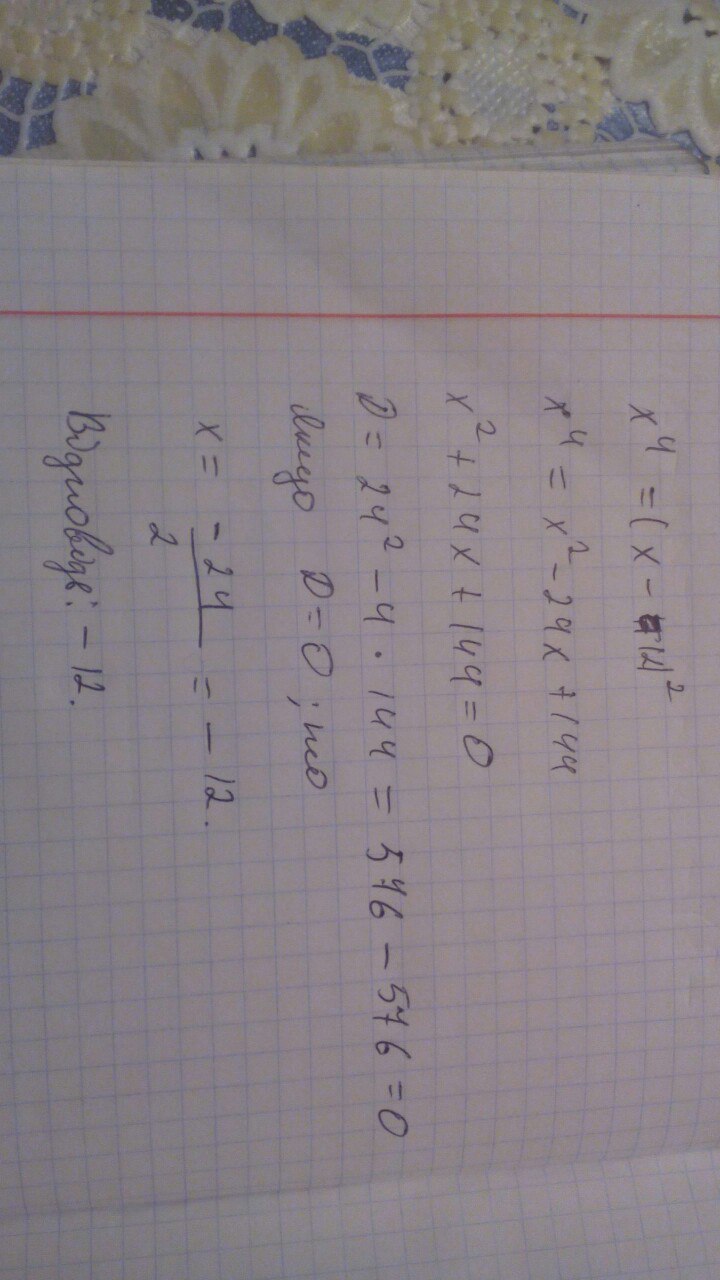 x⁴ = (x - 12)²
x⁴ = x² - 24x + 144
x² + 24x + 144 = 0
D = 24² - 4 · 144 = 576 - 576 = 0
якщо D = 0; то
x = -24/2 = - 12.
Відповідь: - 12.